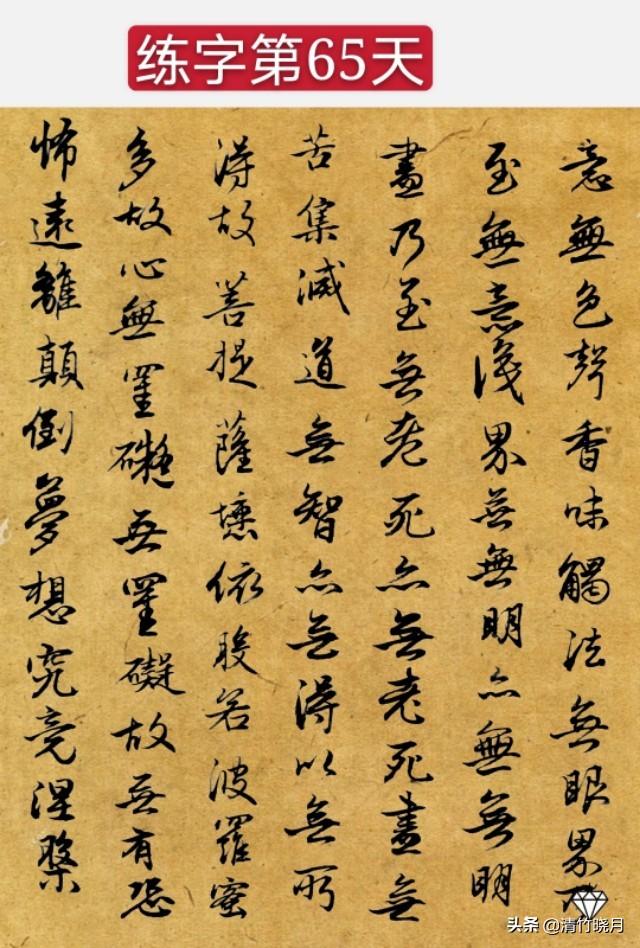 练字第65天
意無色聲香味觸法無眼界乃
至無意識界無無明亦無無明
盡乃至無老死亦無老死盡無
苦集滅道無智亦無得以無所
得故菩提薩埵依般若波羅蜜
多故心無罣礙無罣礙故無有恐
怖遠離顛倒夢想究竟涅槃
头条 @清竹晓月